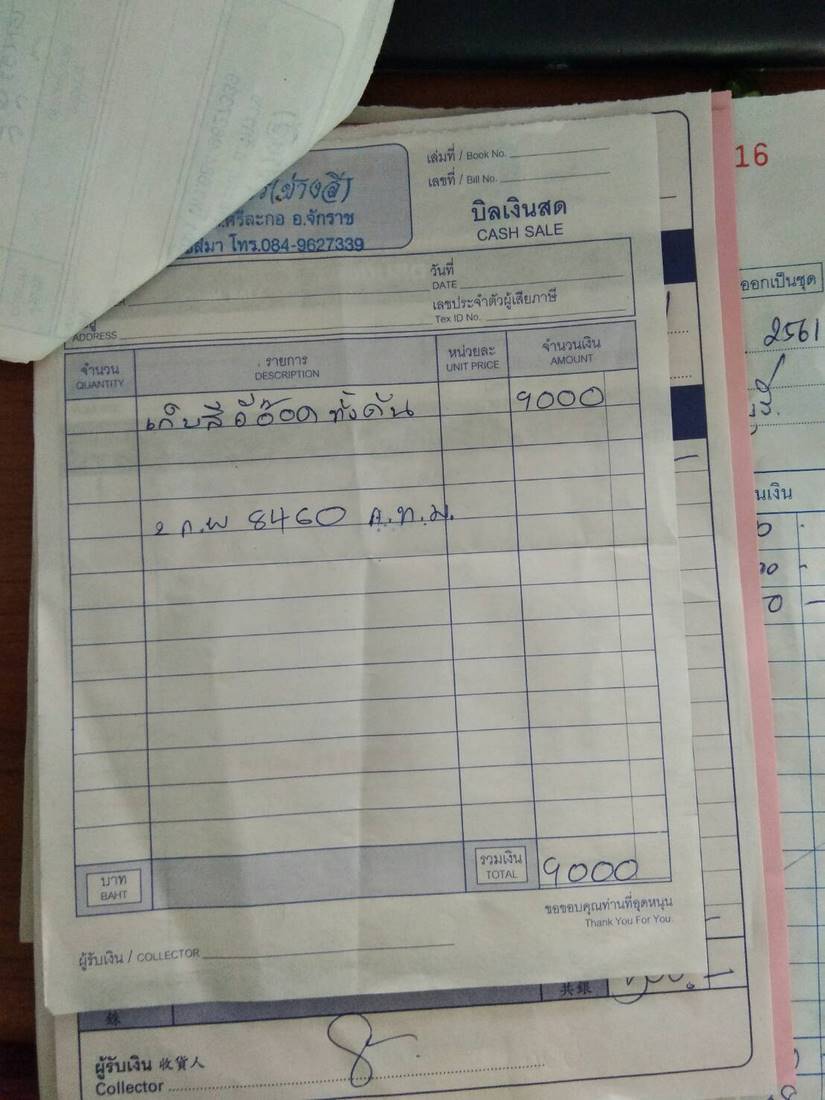 (ช่างสี)
.ศรีละกอ อ.จักราช
สีมา โทร.084-9627339
เล่มที่ / Book No.
เลขที่ / Bill No.
บิลเงินสด
CASH SALE
วันที่
DATE
ADDRESS
เลขประจำตัวผู้เสียภาษี
Tex ID No.
จำนวน รายการ หน่วยละ จำนวนเงิน
QUANTITY DESCRIPTION UNIT PRICE AMOUNT
เก็บสีอีอ๊อดทั้งคัน 9000
2 ก.พ 8460 ก.ท.ม.
บาท รวมเงิน 9000
BAHT TOTAL
ขอขอบคุณท่านที่อุดหนุน
Thank You For You
ผู้รับเงิน / COLLECTOR
共銀
ผู้รับเงิน 收貨人
Collector
16
ออกเป็นชุด
2561
นเงิน